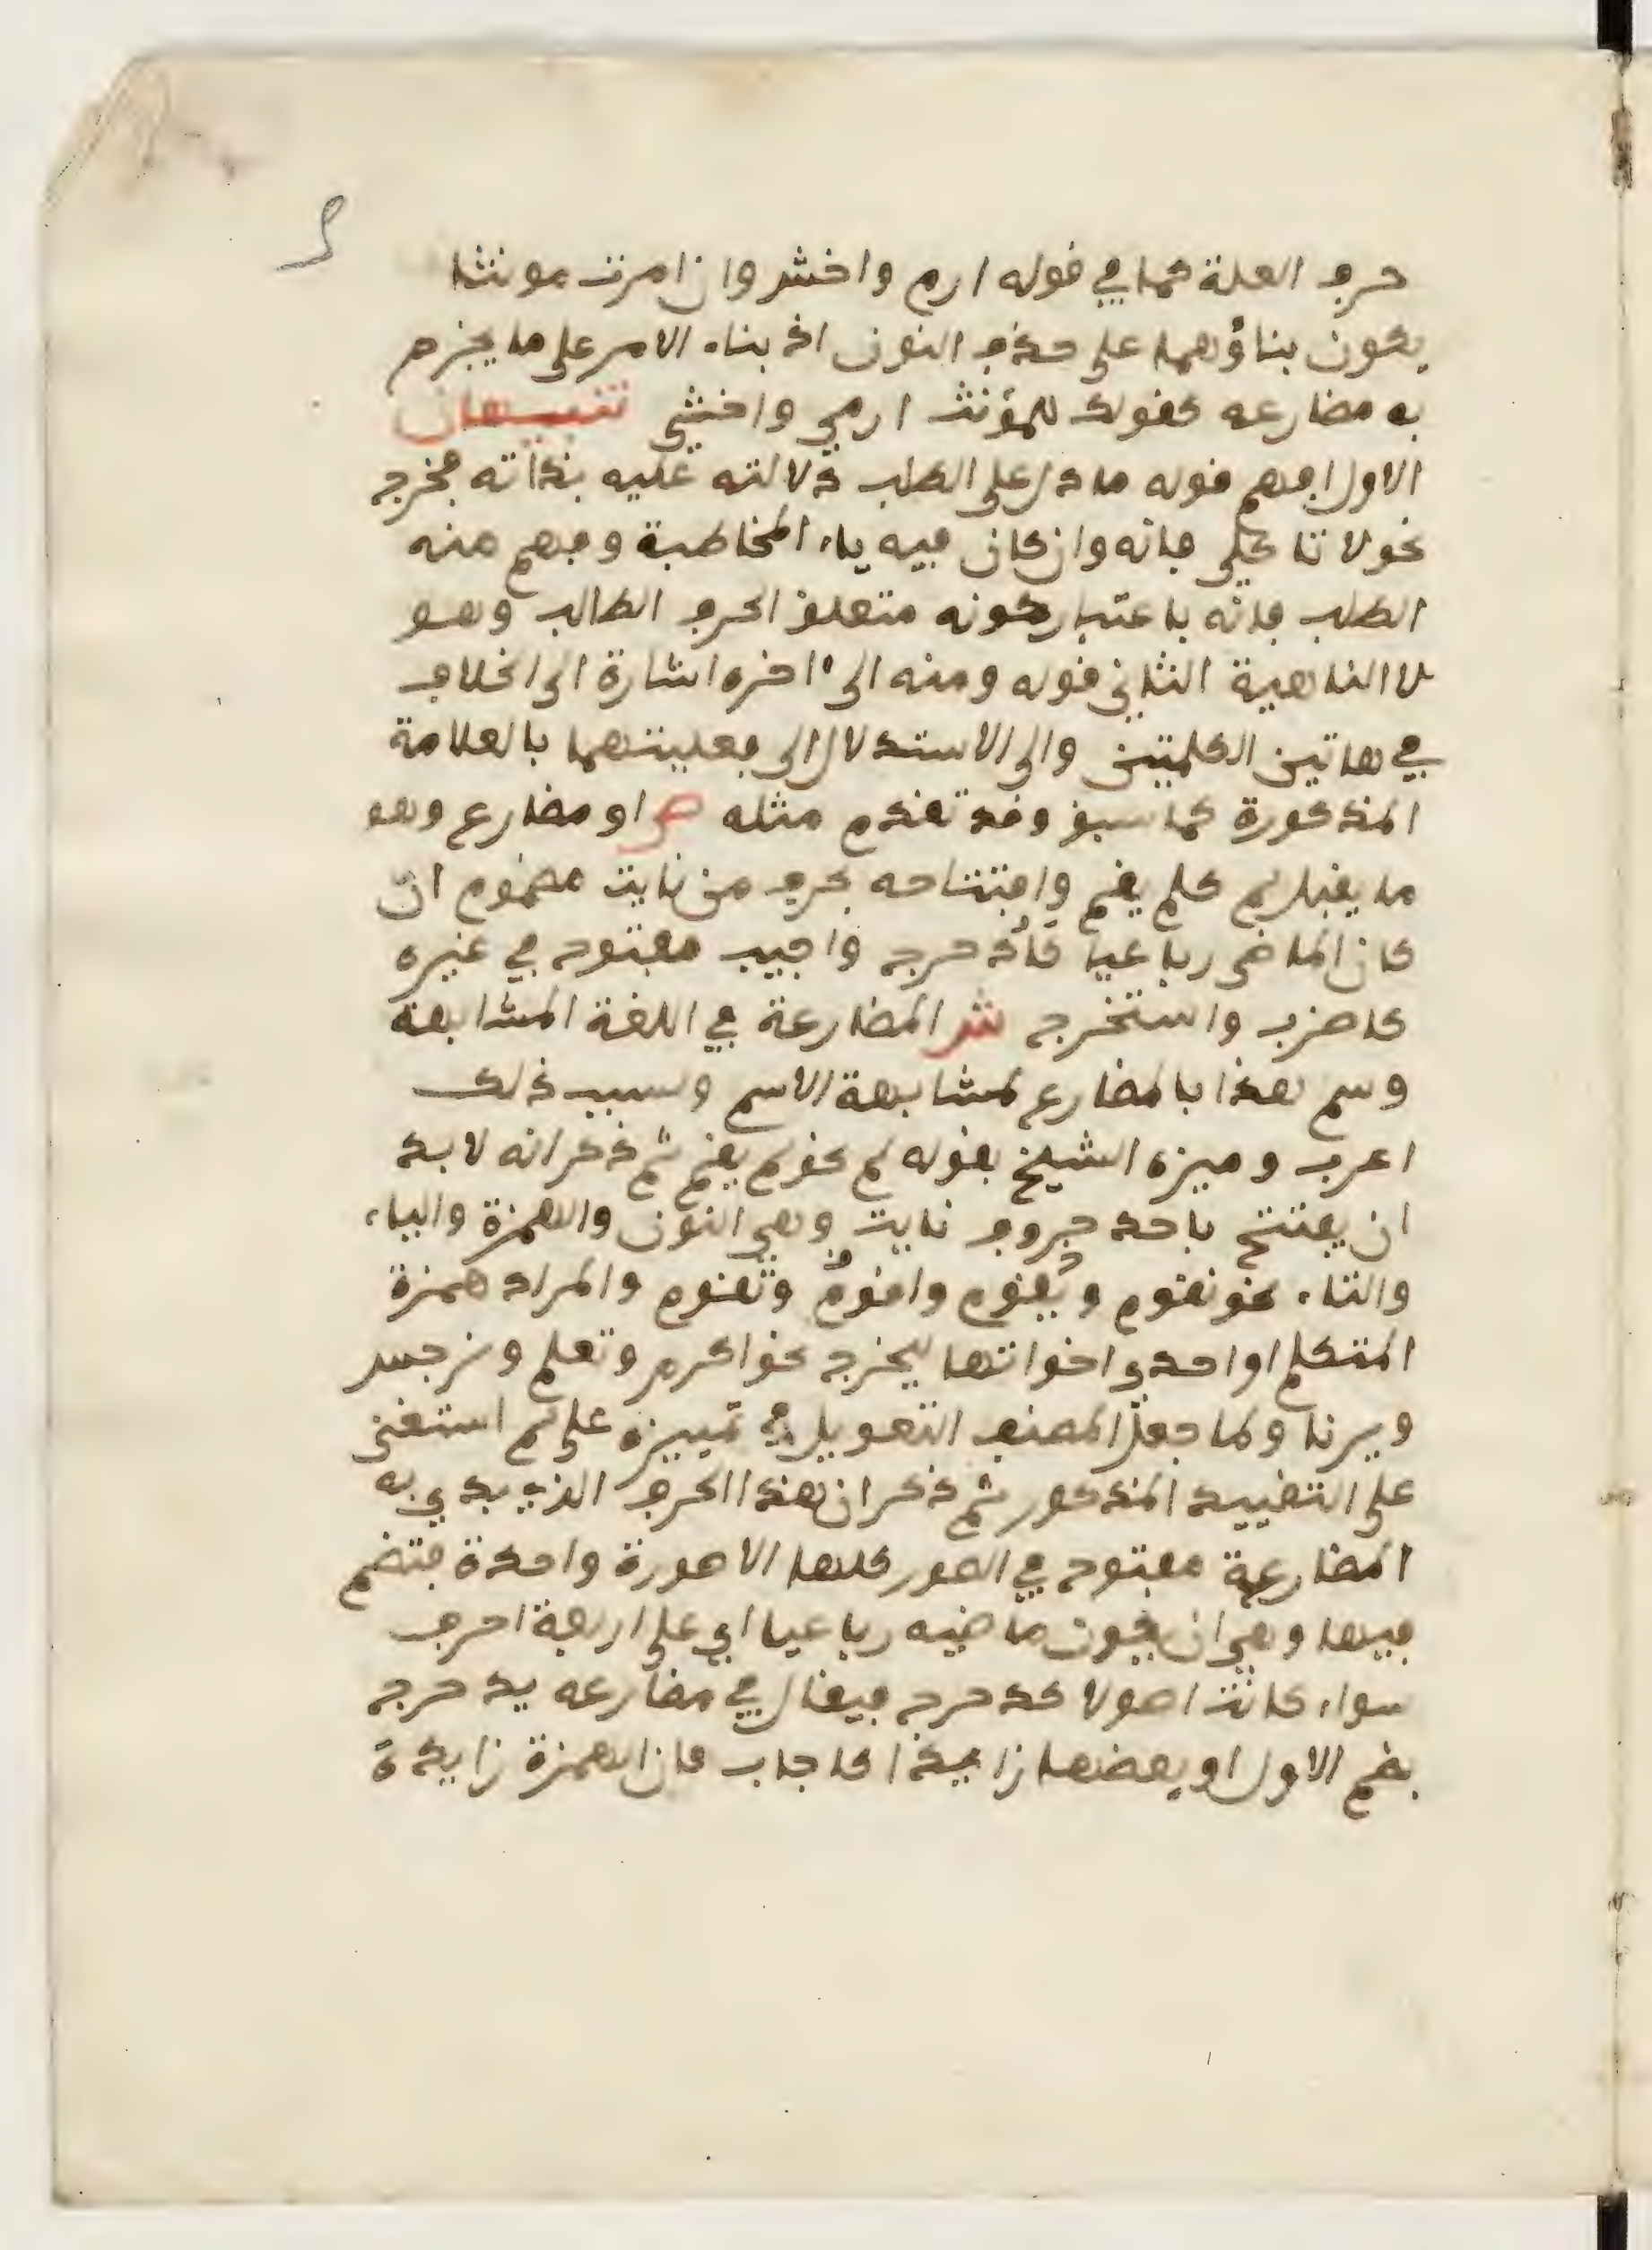 حرف العلة كما في قوله ارم واخش وان امرت مونثا
يكون بناؤهما على حذف النون اذ بناء الامر على ما يجزم
به مضارعه كقولك للمؤنث ارمي واخشي تنبيهان
الاول افهم قوله ما دل على الطلب دلالته عليه بذاته فخرج
نحو لا تاكلي فانه وان كان فيه ياء المخاطبة وفهم منه
الطلب فانه باعتبار كونه متعلق الحرف الطالب وهو
لا الناهية الثاني قوله ومنه الى ءاخره اشارة الى الخلاف
في هاتين الكلمتين والى الاستدلال الى فعليتهما بالعلامة
المذكورة كما سبق وقد تقدم مثله ص او مضارع وهو
ما يقبل لم كلم يقم وافتتاحه بحرف من نايت مضموم ان
كان الماضي رباعيا كأدحرج واجيب مفتوح في غيره
كاضرب واستخرج ش المضارعة في اللغة المشابهة
وسم هذا بالمضارع لمشابهة الاسم ولسبب ذلك
اعرب وميزه الشيخ بقوله لم نحو لم يقم ثم ذكر انه لا بد
ان يفتتح باحد حروف نايت وهي النون والهمزة والياء
والتاء نحو نقوم ويقوم واقوم وتقوم والمراد همزة
المتكلم اواحدى اخواتها ليخرج نحو اكرم وتعلم ونرجس
ويرنا ولما جعل المصنف التعويل في تمييزه على لم استغنى
على التقييد المذكور ثم ذكر ان هذا الحرف الذي بدي به
المضارعة مفتوح في الصور كلها الا صورة واحدة فتضم
فيها وهي ان يكون ماضيه رباعيا اي على اربعة احرف
سواء كانت اصولا كدحرج فيقال في مضارعه يدحرج
بضم الاول او بعضها زايدا كاجاب فان الهمزة زايدة